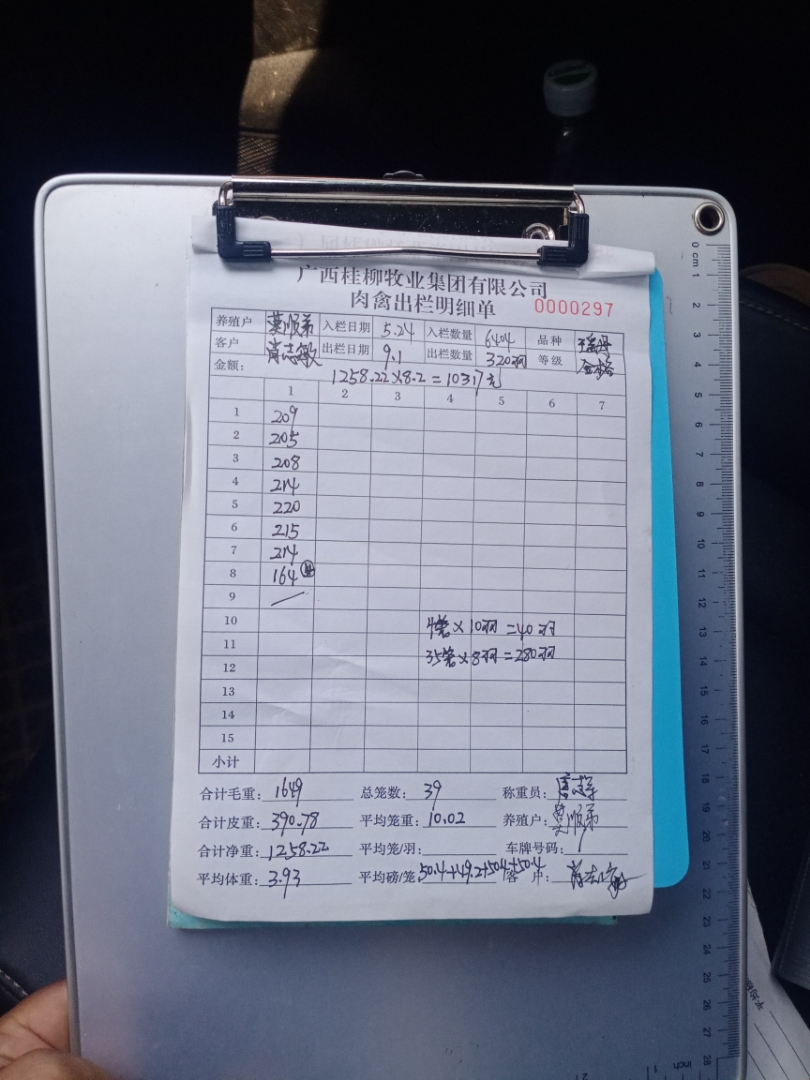 广西桂柳牧业集团有限公司
肉禽出栏明细单 0000297
养殖户 莫顺弟 入栏日期 5.24 入栏数量 6404 品种
客户 肖志敏 出栏日期 9.1 出栏数量 320羽 等级 合格
金额: 1258.22×8.2=10317元
1 2 3 4 5 6 7
1 209
2 205
3 208
4 214
5 220
6 215
7 214
8 164
9
10 4笼×10羽=40羽
11 35笼×8羽=280羽
12
13
14
15
小计
合计毛重: 1649 总笼数: 39 称重员:
合计皮重: 390.78 平均笼重: 10.02 养殖户: 莫顺弟
合计净重: 1258.22 平均笼/羽: 车牌号码:
平均体重: 3.93 平均磅/笼: 50.4+49.2+50.4+50.4 客户:
0 cm 1 2 3 4 5 6 7 8 9 10 11 12 13 14 15 16 17 18 19 20 21 22 23 24 25 26 27 28
inch 1 2